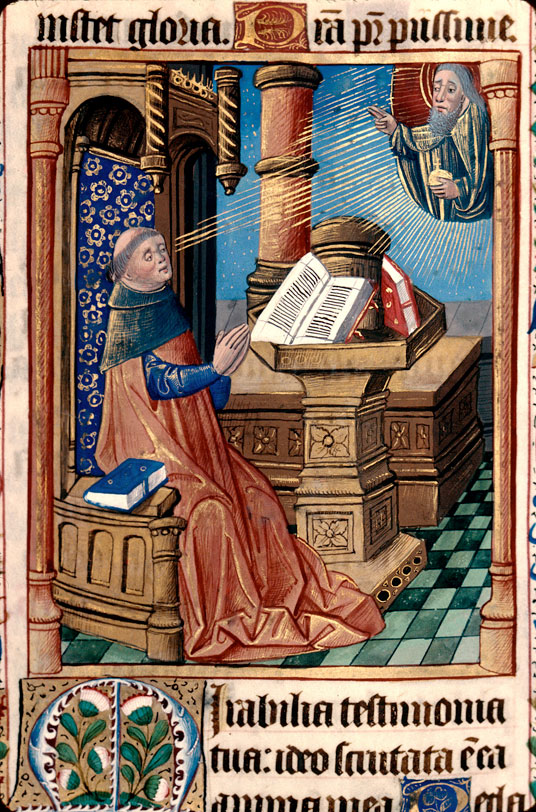 instet gloria. P̄rā pr̄ pīissime.
Mirabilia testimonia
tua: ideo scrutata ē ea
anima mea. Gl̄a